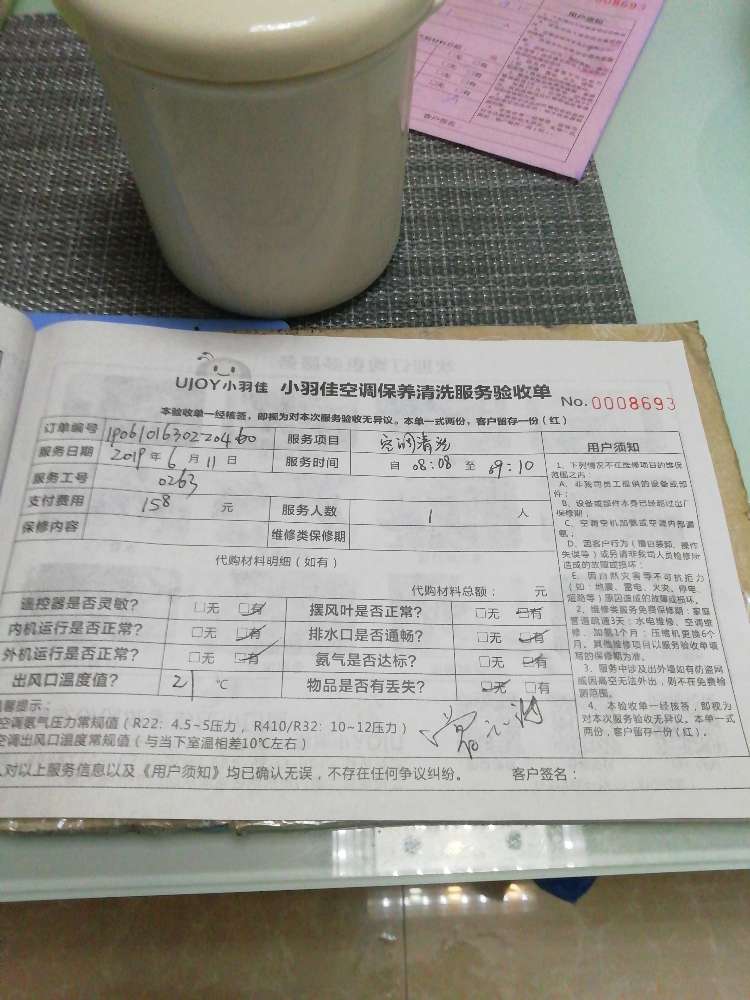 0008693
用户须知
客户签名
UJOY小羽佳 小羽佳空调保养清洗服务验收单 No. 0008693
本验收单一经核签，即视为对本次服务验收无异议。本单一式两份，客户留存一份（红）
订单编号 服务项目 空调清洗
服务日期 2019 年 6 月 11 日 服务时间 自 08:08 至 09:10
服务工号 0263
支付费用 158 元 服务人数 1 人
保修内容 维修类保修期
代购材料明细（如有）
代购材料总额： 元
遥控器是否灵敏？ □无 □有 摆风叶是否正常？ □无 □有
内机运行是否正常？ □无 □有 排水口是否通畅？ □无 □有
外机运行是否正常？ □无 □有 氨气是否达标？ □无 □有
出风口温度值？ 21 ℃ 物品是否有丢失？ □无 □有
馨提示：
空调氨气压力常规值（R22：4.5~5压力，R410/R32：10~12压力）
空调出风口温度常规值（与当下室温相差10℃左右）
人对以上服务信息以及《用户须知》均已确认无误，不存在任何争议纠纷。 客户签名：
用户须知
1、下列情况不在维修项目的维保
范围之内：
A、非我司员工提供的设备或部
件；
B、设备或部件本身已经超过出厂
保修期；
C、空调空机加氨或空调内部漏
氨；
D、因客户行为（擅自装卸、操作
失误等）或另请非我司人员检修所
造成的故障或损坏；
E、因自然灾害等不可抗拒力
（如：地震、雷电、火灾、停电、
短路等）原因造成的故障或损坏。
2、维修类服务免费保修期：家庭
管道疏通3天；水电维修、空调维
修、加氨1个月；压缩机更换6个
月。其他维修项目以服务验收单填
写的保修期为准。
3、服务中涉及出外墙如有防盗网
或因高空无法外出，则不在免费检
测范围。
4、本验收单一经核签，即视为
对本次服务验收无异议。本单一式
两份，客户留存一份（红）。